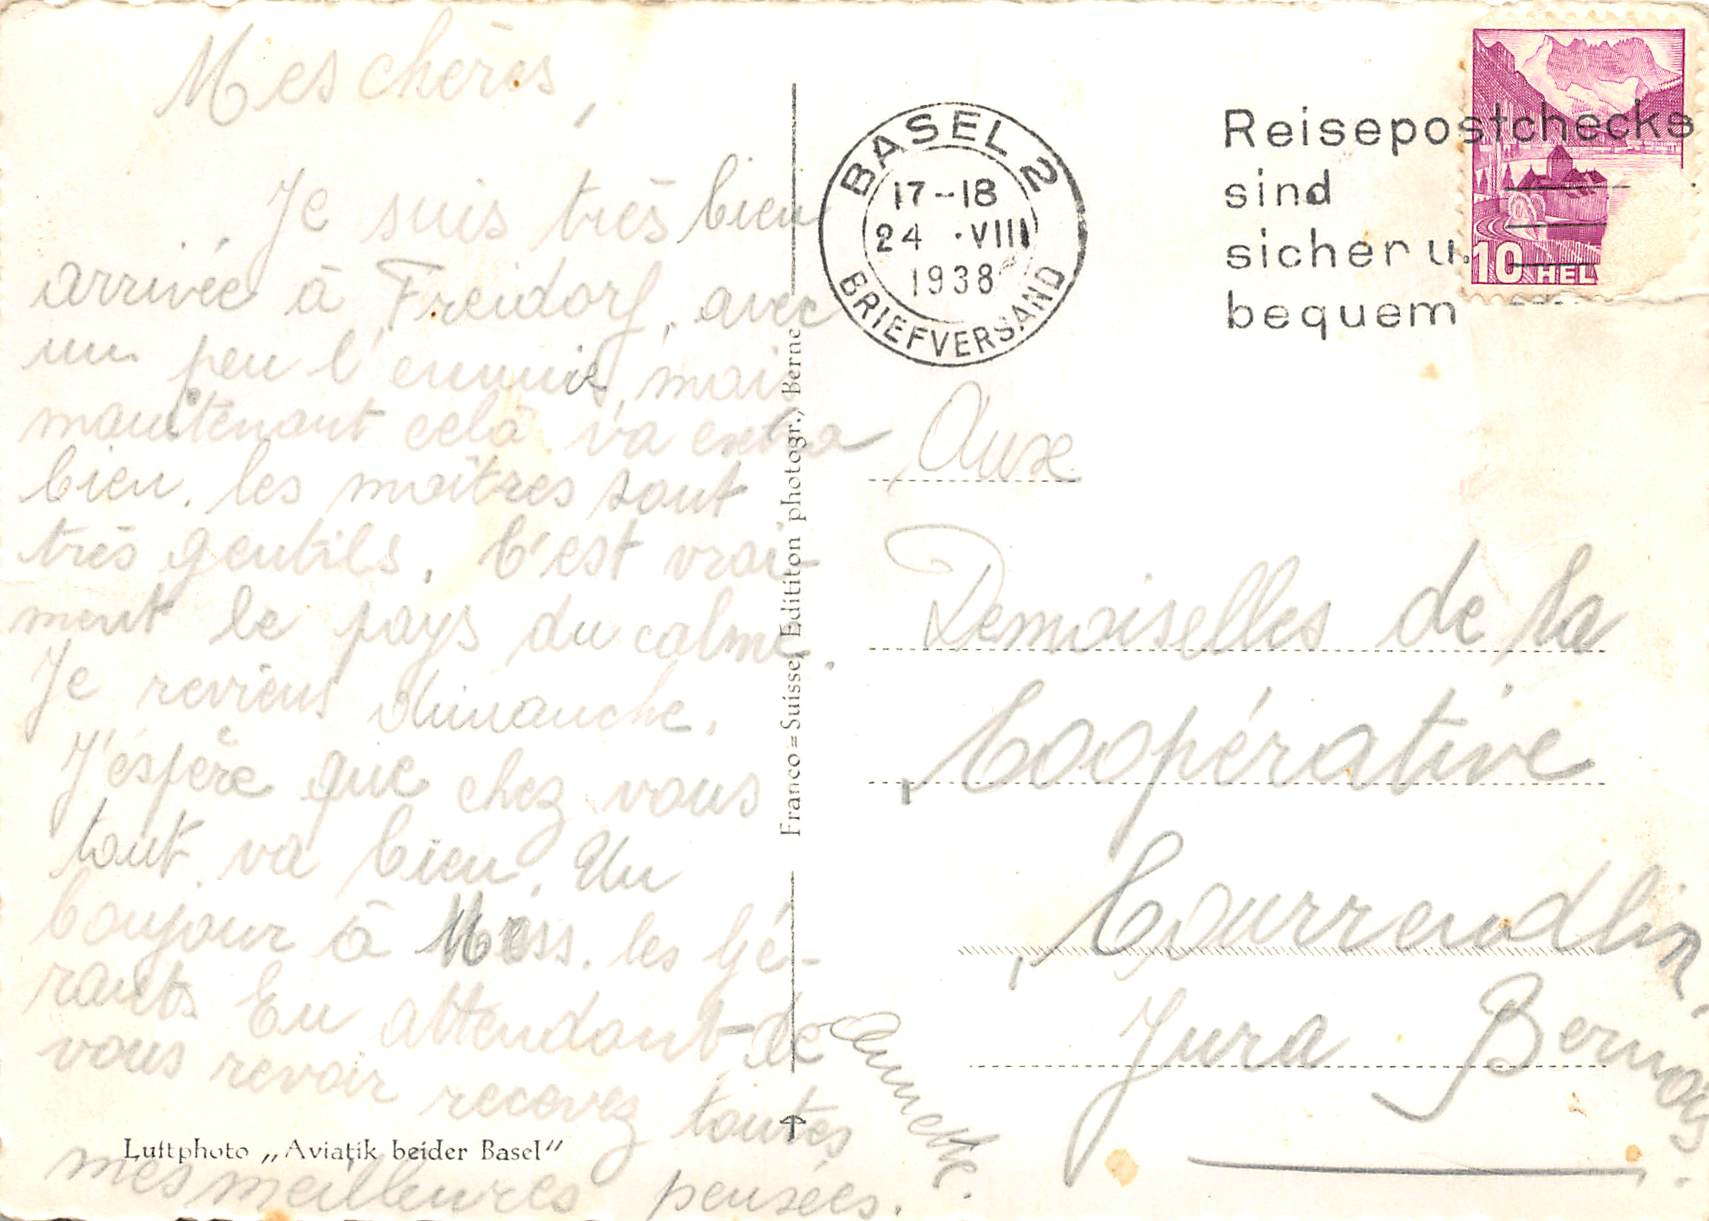 Mes chères,
Je suis très bien
arrivée à Freidorf, avec
un peu l'ennuie, mais
maintenant celà va extra
bien. les maîtres sont
très gentils. C'est vrai-
ment le pays du calme.
Je reviens dimanche.
J'éspère que chez vous
tout va bien. Un
bonjour à Mess. les Gé-
rants. En attendant de
vous revoir recevez toutes
mes meilleures pensées.
Annette.
Luftphoto „Aviatik beider Basel"
Franco=Suisse, Edititon photogr., Berne
BASEL 2
17-18
24 ·VIII
1938
BRIEFVERSAND
Reisepostchecks
sind
sicher u.
bequem
10 HEL
Aux
Demoiselles de la
Coopérative
Courrendlin.
Jura Bernois.